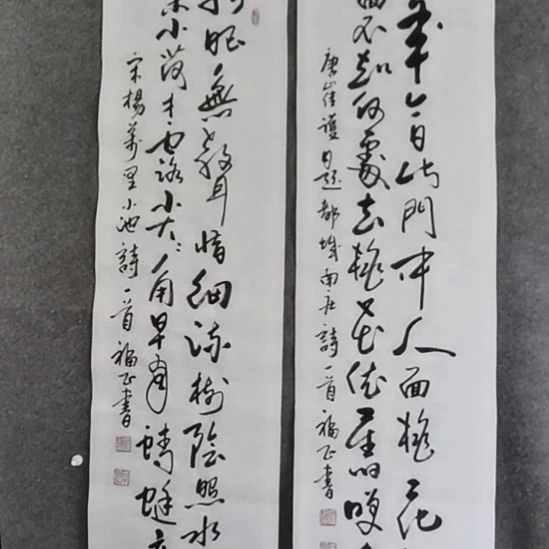 年今日此門中人面桃花
面不知何處去桃花依舊咲
唐崔護題都城南庄詩一首 福正書
眼無聲惜細流樹陰照水
柔小荷才露尖尖角早有蜻蜓
宋楊萬里小池詩一首 福正書